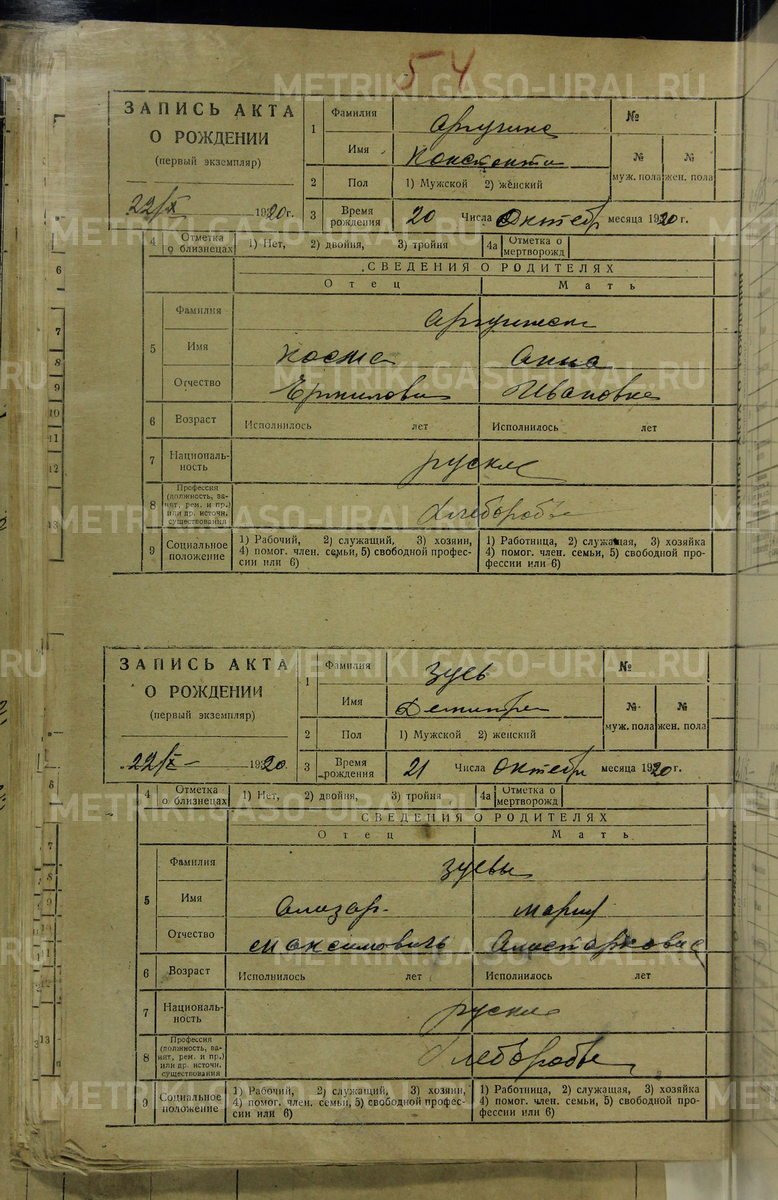 54
ЗАПИСЬ АКТА
О РОЖДЕНИИ
(первый экземпляр)
22/X 1920г.
1 Фамилия
Имя Константи
№
№ муж. пола № жен. пола
2 Пол 1) Мужской 2) женский
3 Время рождения 20 Числа Октебр месяца 1920 г.
4 Отметка о близнецах 1) Нет, 2) двойня, 3) тройня 4а Отметка о мертворожд
СВЕДЕНИЯ О РОДИТЕЛЯХ
Отец Мать
5 Фамилия
Имя Косма Анна
Отчество Ермилови Ивановна
6 Возраст Исполнилось лет Исполнилось лет
7 Националь-
ность руские
8 Профессия
(должность, за-
нят, рем. и пр.)
или др. источн.
существования Хлеборобы
9 Социальное положение
1) Рабочий, 2) служащий, 3) хозяин,
4) помог. член. семьи, 5) свободной профес-
сии или 6)
1) Работница, 2) служащая, 3) хозяйка
4) помог. член. семьи, 5) свободной про-
фессии или 6)
ЗАПИСЬ АКТА
О РОЖДЕНИИ
(первый экземпляр)
22/X 1920.
1 Фамилия Зуев
Имя Демитре
№
№ муж. пола № жен. пола
2 Пол 1) Мужской 2) женский
3 Время рождения 21 Числа Октебр месяца 1920 г.
4 Отметка о близнецах 1) Нет, 2) двойня, 3) тройня 4а Отметка о мертворожд
СВЕДЕНИЯ О РОДИТЕЛЯХ
Отец Мать
5 Фамилия Зуевы
Имя Елизар Мария
Отчество Максимовичь
6 Возраст Исполнилось лет Исполнилось лет
7 Националь-
ность руские
8 Профессия
(должность, за-
нят, рем. и пр.)
или др. источн.
существования Хлеборобы
9 Социальное положение
1) Рабочий, 2) служащий, 3) хозяин,
4) помог. член. семьи, 5) свободной профес-
сии или 6)
1) Работница, 2) служащая, 3) хозяйка
4) помог. член. семьи, 5) свободной про-
фессии или 6)
METRIKI.GASO-URAL.RU